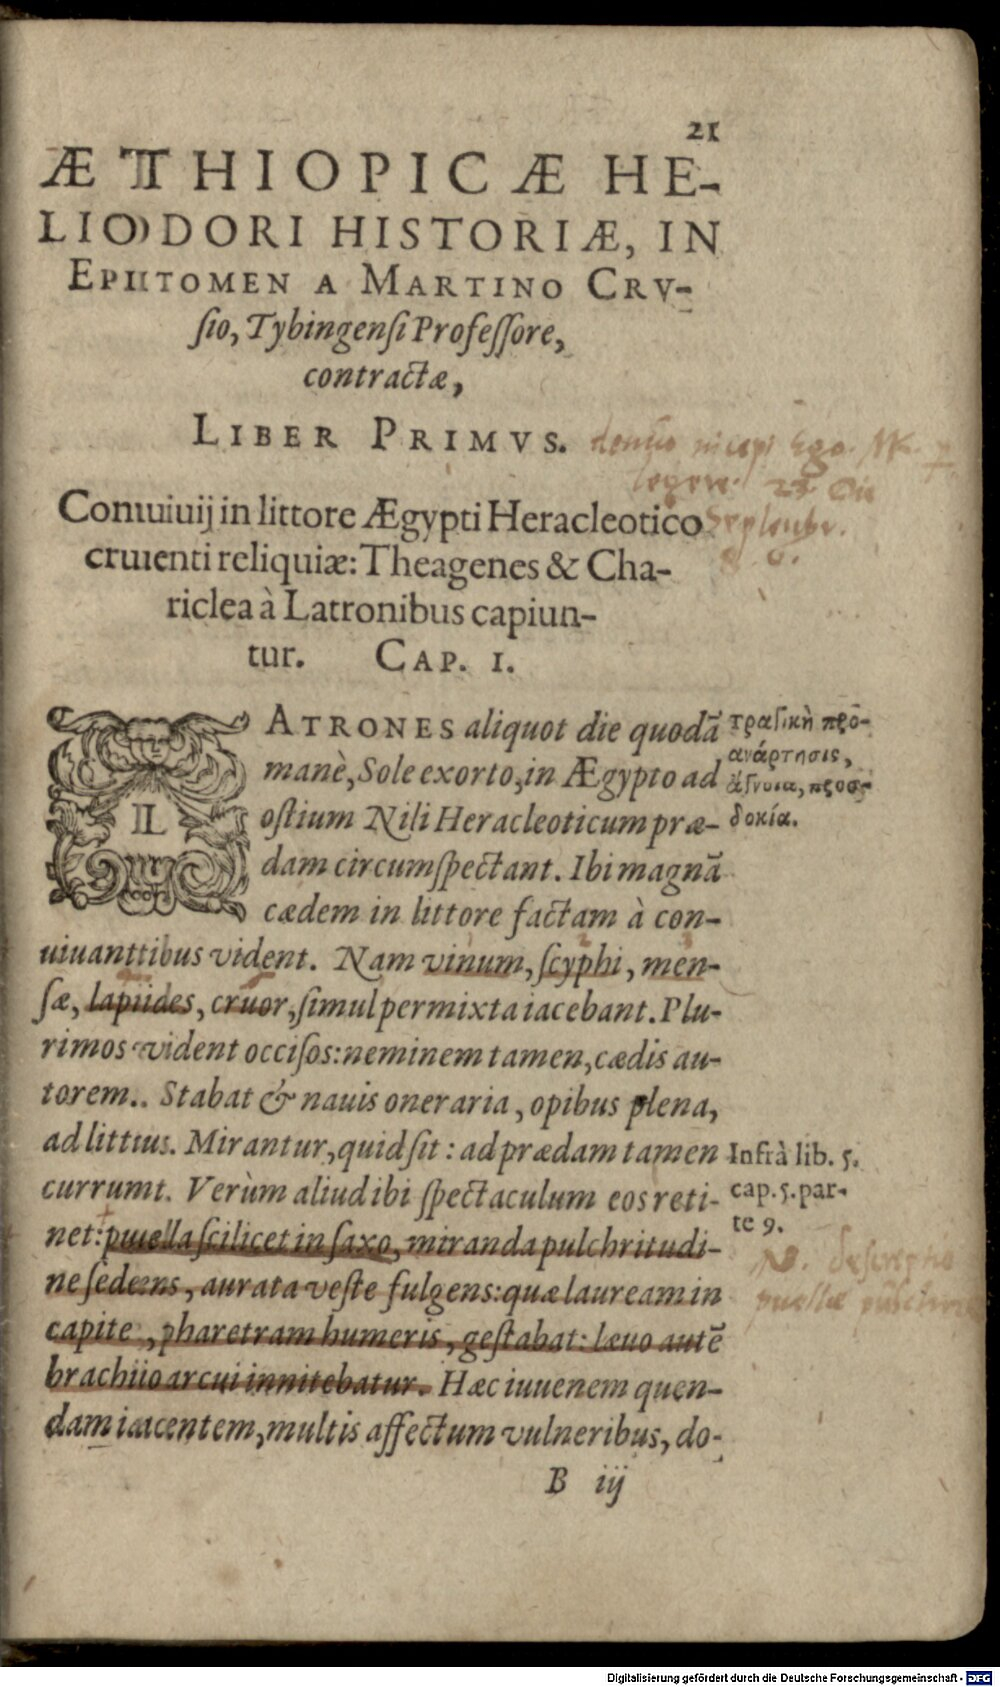 21
ÆTHIOPICÆ HE-
LIODORI HISTORIÆ, IN
EPITOMEN A MARTINO CRV-
ſio, Tybingenſi Profeſſore,
contractæ,
LIBER PRIMVS.
denuo incepi Ego
legere 23 Die
Septembr.
Conuiuij in littore Ægypti Heracleotico
cruenti reliquiæ: Theagenes & Cha-
riclea à Latronibus capiun-
tur. CAP. I.
LATRONES aliquot die quodā
manè, Sole exorto, in Ægypto ad
oſtium Nili Heracleoticum præ-
dam circumſpectant. Ibi magnā
cædem in littore factam à con-
uiuantibus vident. Nam vinum, ſcyphi, men-
ſæ, lapides, cruor, ſimul permixta iacebant. Plu-
rimos vident occiſos: neminem tamen, cædis au-
torem. Stabat & nauis oneraria, opibus plena,
ad littus. Mirantur, quid ſit: ad prædam tamen
currunt. Verùm aliud ibi ſpectaculum eos reti-
net: puella ſcilicet in ſaxo, miranda pulchritudi-
ne ſedens, aurata veſte fulgens: quæ lauream in
capite, pharetram humeris, geſtabat: læuo autē
brachio arcui innitebatur. Hæc iuuenem quen-
dam iacentem, multis affectum vulneribus, do-
B iij
τραγικὴ προ-
ανάρτησις,
ἄγνοια, προσ-
δοκία.
Infrà lib. 5.
cap. 5. par-
te 9.
N. descriptio
puellæ pulchræ
Digitalisierung gefördert durch die Deutsche Forschungsgemeinschaft - DFG